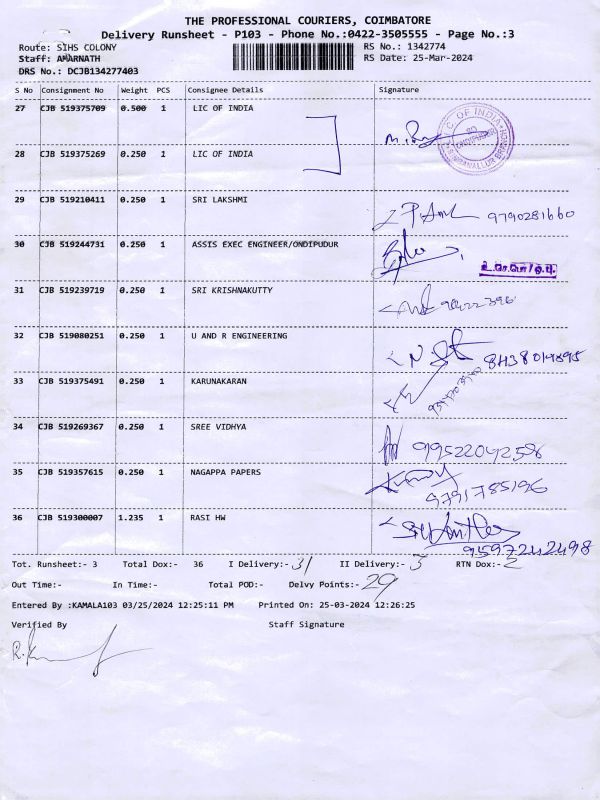 THE PROFESSIONAL COURIERS, COIMBATORE
Delivery Runsheet - P103 - Phone No.:0422-3505555 - Page No.:3
Route: SIHS COLONY RS No.: 1342774
Staff: AMARNATH RS Date: 25-Mar-2024
DRS No.: DCJB134277403
S No Consignment No Weight PCS Consignee Details Signature
27 CJB 519375709 0.500 1 LIC OF INDIA
28 CJB 519375269 0.250 1 LIC OF INDIA
29 CJB 519210411 0.250 1 SRI LAKSHMI 9790281660
30 CJB 519244731 0.250 1 ASSIS EXEC ENGINEER/ONDIPUDUR
31 CJB 519239719 0.250 1 SRI KRISHNAKUTTY
32 CJB 519080251 0.250 1 U AND R ENGINEERING
33 CJB 519375491 0.250 1 KARUNAKARAN
34 CJB 519269367 0.250 1 SREE VIDHYA
35 CJB 519357615 0.250 1 NAGAPPA PAPERS 9791785196
36 CJB 519300007 1.235 1 RASI HW 9597242498
Tot. Runsheet:- 3 Total Dox:- 36 I Delivery:- 31 II Delivery:- 5 RTN Dox:- 2
Out Time:- In Time:- Total POD:- Delvy Points:- 29
Entered By :KAMALA103 03/25/2024 12:25:11 PM Printed On: 25-03-2024 12:26:25
Verified By Staff Signature